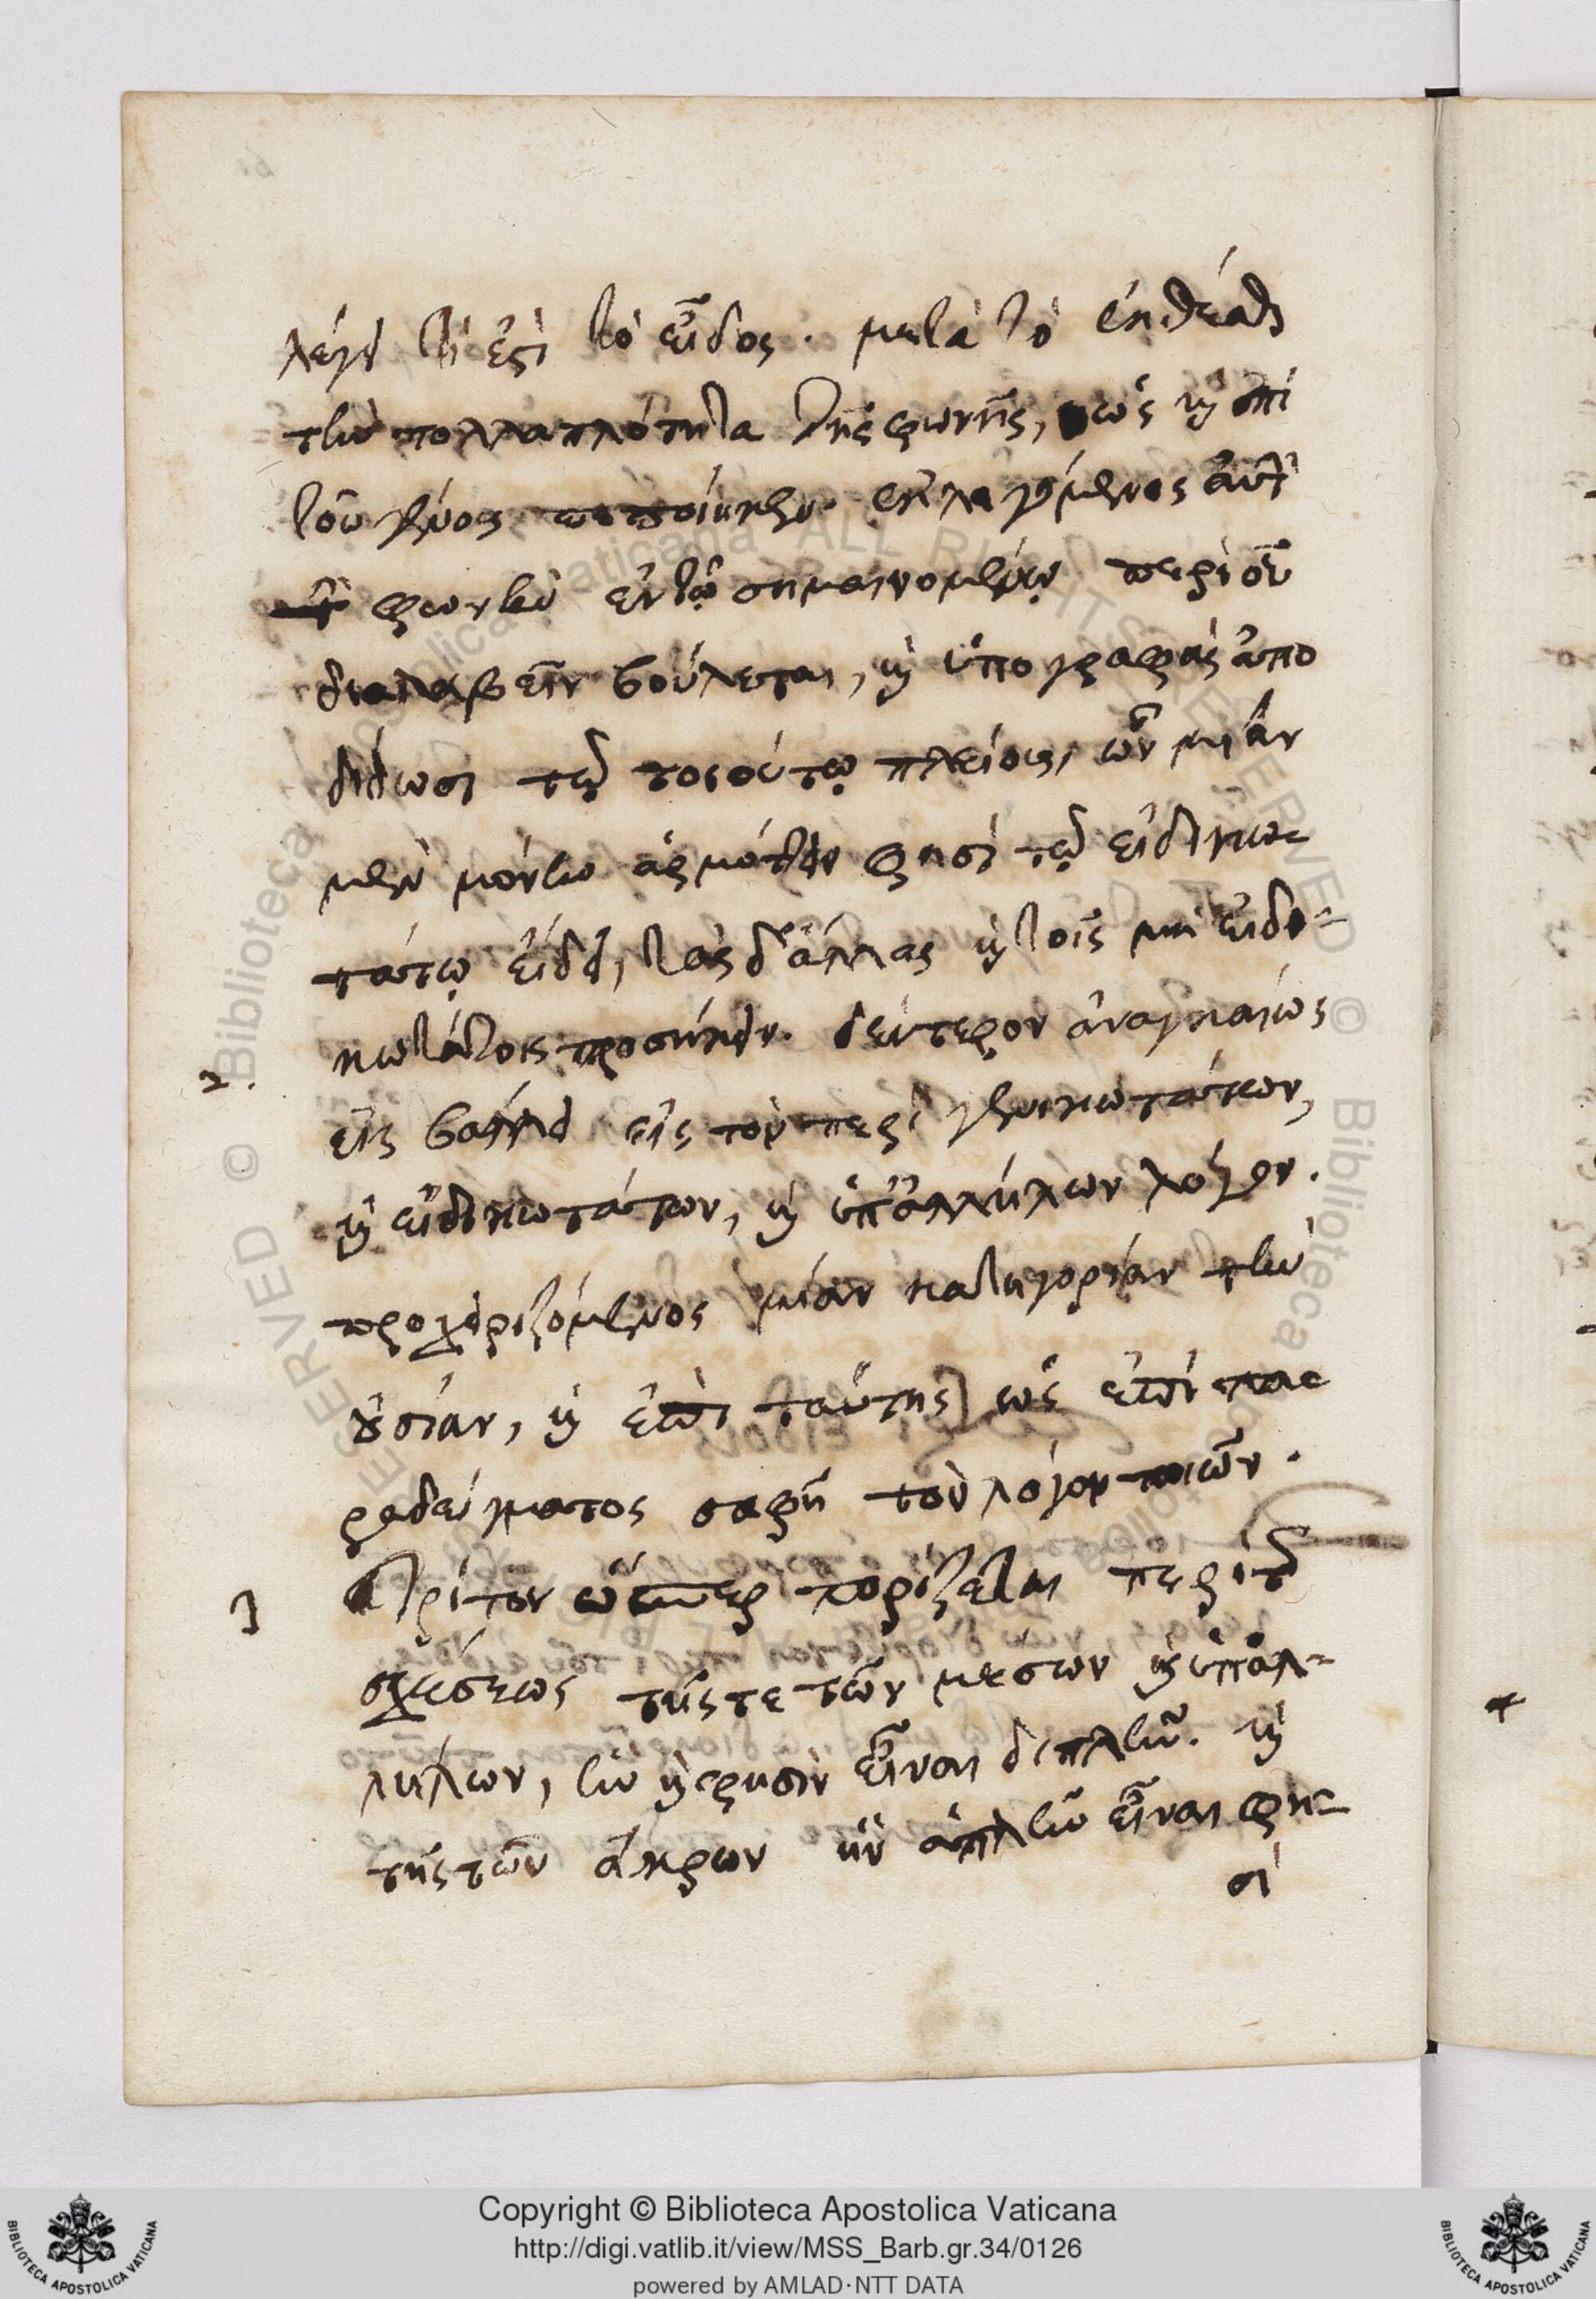 λέγει τί ἐστὶ τὸ εἶδος. μετὰ τὸ ἐκθέσθαι
τὴν πολλαπλότητα τῆς φωνῆς, ὡς καὶ ἐπὶ
τοῦ γένους πεποίηκεν. ἐκλεγόμενος αὐτὴν
φωνὴν ἐν τῷ σημαινομένῳ περὶ οὗ
διαλαβεῖν βούλεται, καὶ ὑπογραφὰς ἀπο
δίδωσι τῷ τοιούτῳ πλείους, ὧν μίαν
μὲν μόνην ἁρμόττειν φησὶ τῷ εἰδικω-
τάτῳ εἴδει, τὰς δ' ἄλλας καὶ τοῖς μὴ εἰδι-
κωτάτοις προσήκειν. δεύτερον ἀναγκαίως
2.
εἰσβάλλει εἰς τὸν περὶ γενικωτάτων,
καὶ εἰδικωτάτων, καὶ ὑπαλλήλων λόγον.
προχειριζόμενος μίαν κατηγορίαν τὴν
οὐσίαν, καὶ ἐπὶ ταύτης ὡς ἐπὶ πα-
ραδείγματος σαφῆ τὸν λόγον ποιῶν.
3 Τρίτον ὥσπερ πορίζεται περὶ τῆς
σχέσεως τῆς τε τῶν μέσων καὶ ὑπαλ-
λήλων, ἣν καί φησιν εἶναι διπλῆν. καὶ
τῆς τῶν ἄκρων ἣν ἁπλῆν εἶναι φη-
σὶ
Copyright © Biblioteca Apostolica Vaticana
http://digi.vatlib.it/view/MSS_Barb.gr.34/0126
powered by AMLAD·NTT DATA